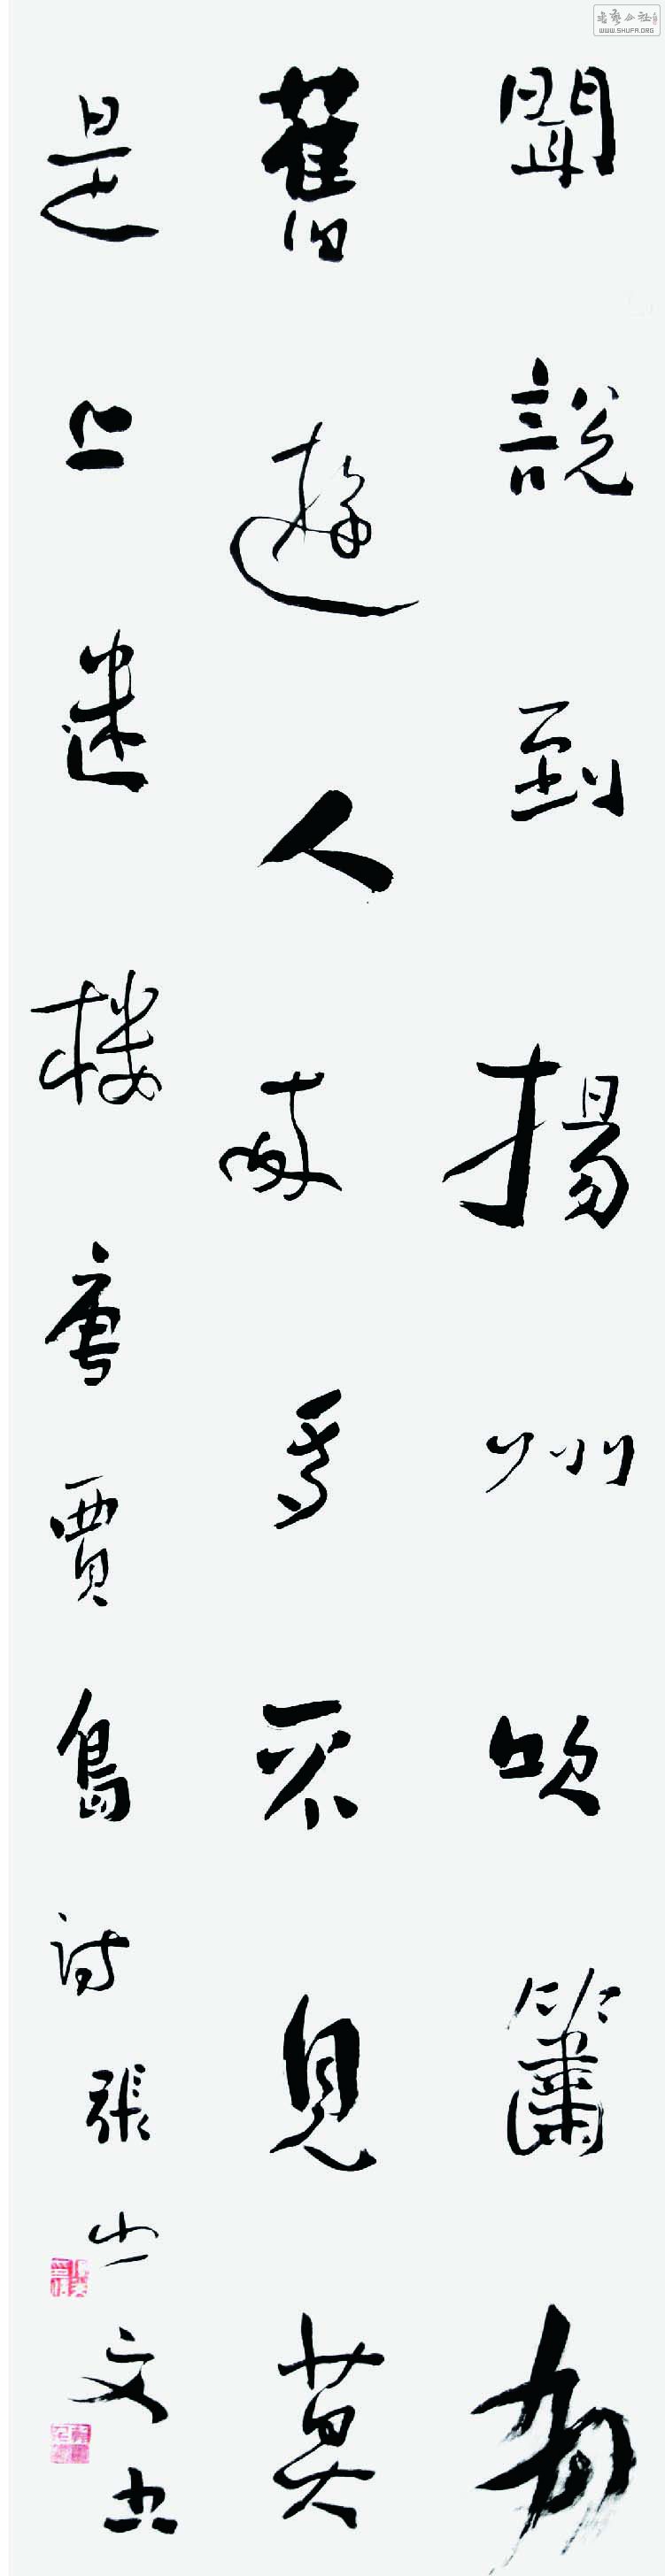 聞說到揚州吹簫有
舊遊人來多不見莫
是上迷樓唐賈島詩張文
WWW.SHUFA.ORG